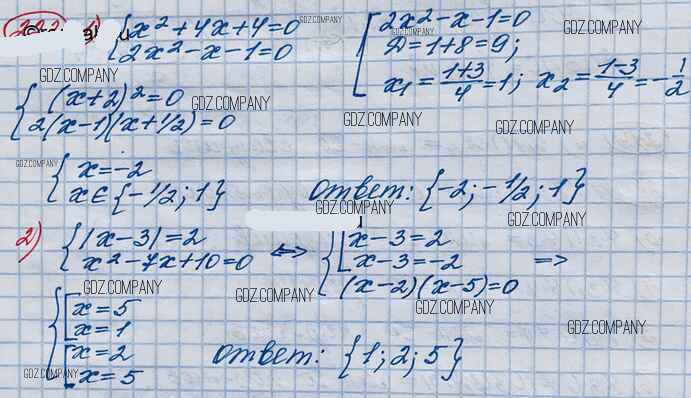 222
1) { x² + 4x + 4 = 0
2x² - x - 1 = 0
[ 2x² - x - 1 = 0
Д = 1 + 8 = 9;
x₁ = (1+3)/4 = 1; x₂ = (1-3)/4 = -1/2
{ (x+2)² = 0
2(x-1)(x+1/2) = 0
{ x = -2
x ∈ {-1/2; 1}
ответ: {-2; -1/2; 1}
2) { |x-3| = 2
x² - 7x + 10 = 0
<=> { [ x-3 = 2
x-3 = -2
(x-2)(x-5) = 0
=>
{ [ x = 5
x = 1
[ x = 2
x = 5
ответ: {1; 2; 5}
GDZ.COMPANY
GDZ.COMPANY
GDZ.COMPANY
GDZ.COMPANY
GDZ.COMPANY
GDZ.COMPANY
GDZ.COMPANY
GDZ.COMPANY
GDZ.COMPANY
GDZ.COMPANY
GDZ.COMPANY
GDZ.COMPANY
GDZ.COMPANY
GDZ.COMPANY